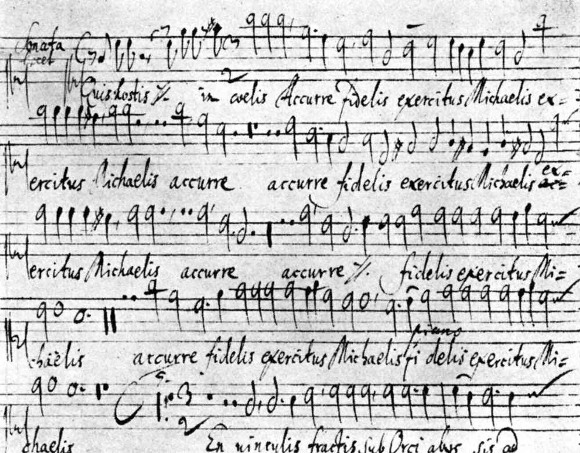 Sonata
tacet
Quis hostis ℀. in coelis Accurre fidelis exercitus Michaelis ex=
ercitus Michaelis accurre accurre fidelis exercitus Michaelis ex=
ercitus Michaelis accurre accurre ℀. fidelis exercitus Mi=
chaëlis accurre fidelis exercitus Michaelis fi delis exercitus Mi=
piano
chaelis En vinculis fractis, sub Orci